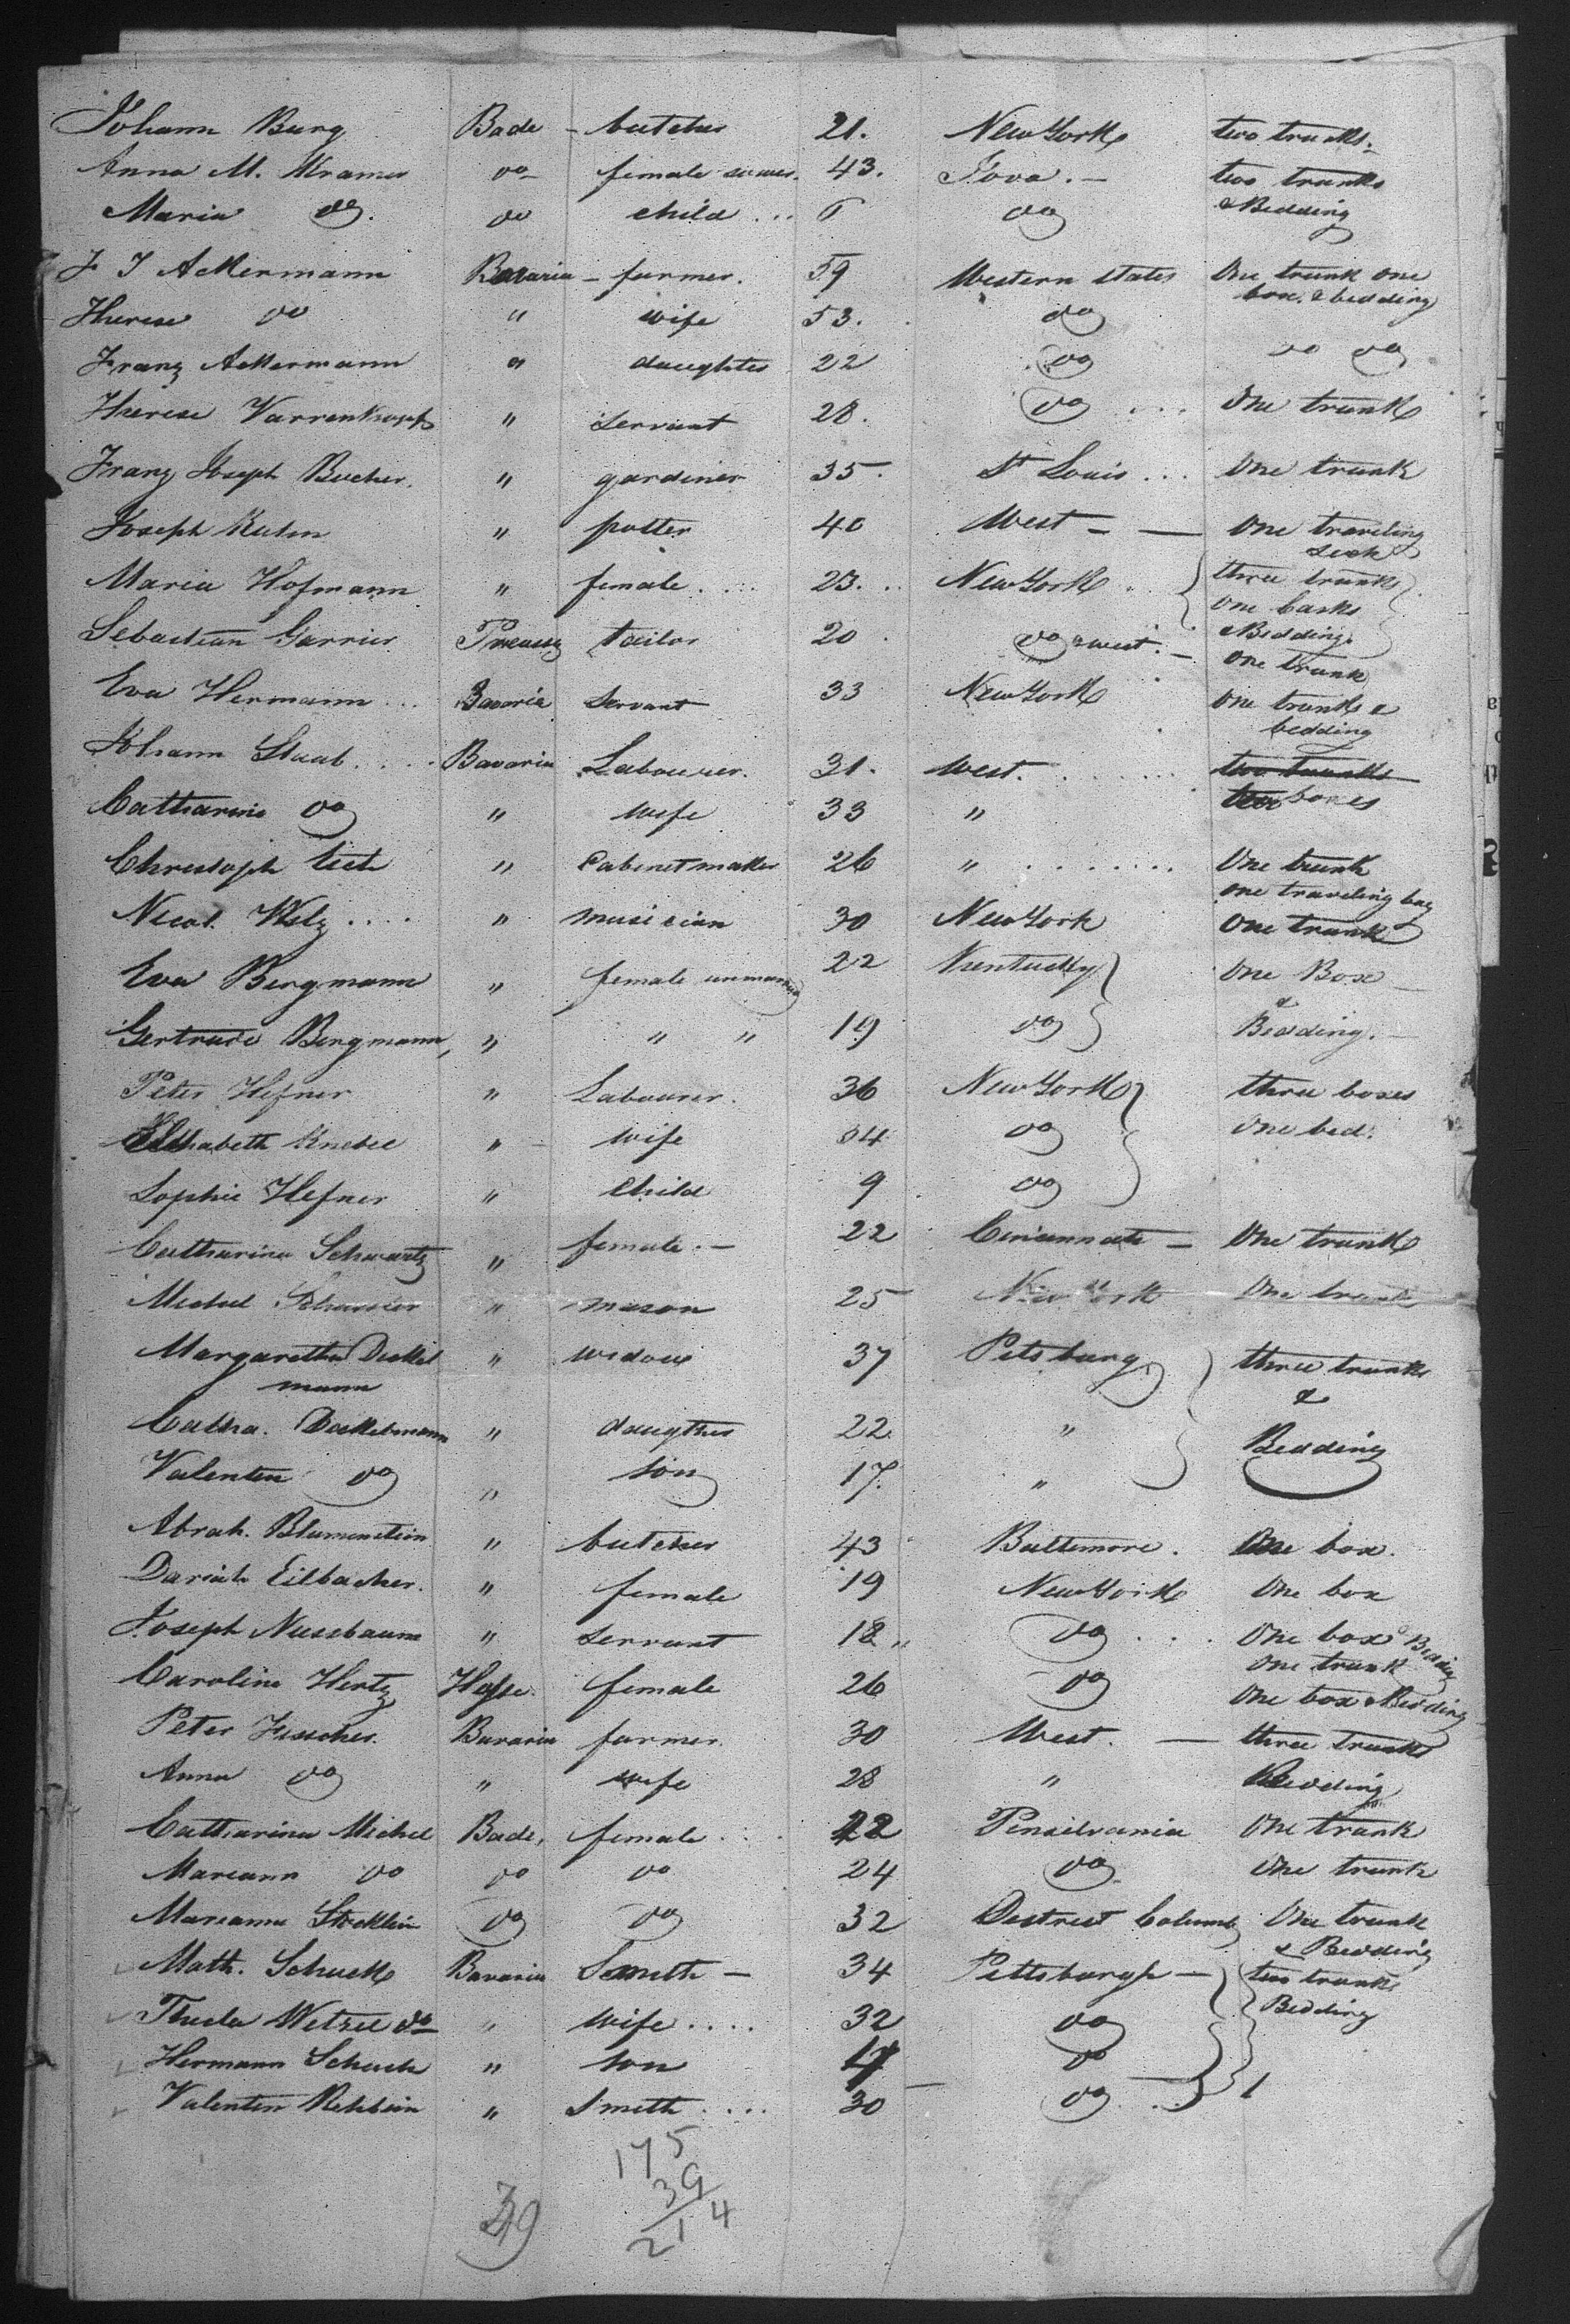 Johann Burg Bade - butcher 21. New York two trunks.
Anna M. Kramer do female 43. Iova. - two trunks
Maria do. do child ... do & Bedding
F J Akermann Bavaria - farmer. 59 Western states One trunk one
box. & bedding
Therese do " wife 53. do
Franz Akermann " daughter 22 do do do
Therese Varrenkopf " Servant 28. do ... One trunk
Franz Joseph Bucher. " gardiner 35. St Louis ... One trunk
Joseph Kuhn " potter 40 West - - One traveling
sack
Maria Hofmann " female .... 23. .. New York . three trunks
one Casks
Sebastian Garrier Preussz tailor 20 . do & west. - & Bedding.
one trunk
Eva Hermann ... Bavaria Servant 33 New York One trunk &
bedding
Johann Staab .... Bavaria Labourer. 31. West. ..... two trunks
Catharina do " wife 33 " two boxes
Christoph " Cabinetmaker 26 " ...... One trunk
one traveling bag
Nicol. Welz .... " musician 30 New York One trunk
Eva Bergmann " female unmarried 22 Kentucky One Box
&
Gertrude Bergmann, " " " 19 do Bedding. -
Peter Hefner " Labourer. 36 New York three boxes
Elisabeth Knebel " wife 34 do One bed.
Sophie Hefner " Child 9 do
Catharina Schwartz " female. - 22 Cincinnati - One trunk
Michel " mason 25 New York One trunk
Margaretha Dickel " widow 37 Pitsburg three trunks
mann &
Catha. Dackelmann " daugther 22. " Bedding
Valentin do " son 17. "
Abrah. Blumenstein " butcher 43 Baltimore. One box.
Eilbacher. " female 19 New York One box
Joseph Nussbaum " Servant 18 " do ... One box & Bedding
One trunk
Caroline Hertz Hesse. female 26 do One box & Bedding
Peter Fischer. Bavaria farmer. 30 West. - three trunks
Anna do " wife 28 " Bedding
Catharina Michel Bade, female ... 22 Pensilvania One trunk
Mariann do do do 24 do One trunk
Mariann Stocklin do do 32 Destrect Columb One trunk
& Bedding
Math. Schuck Bavaria Smith - 34 Pittsburgh - two trunks
Bedding
Thecla Wetzel do " wife .... 32 do
Hermann Schuck " son do
Valentin Rehbein " Smith .... 30 do
175
39
214
39